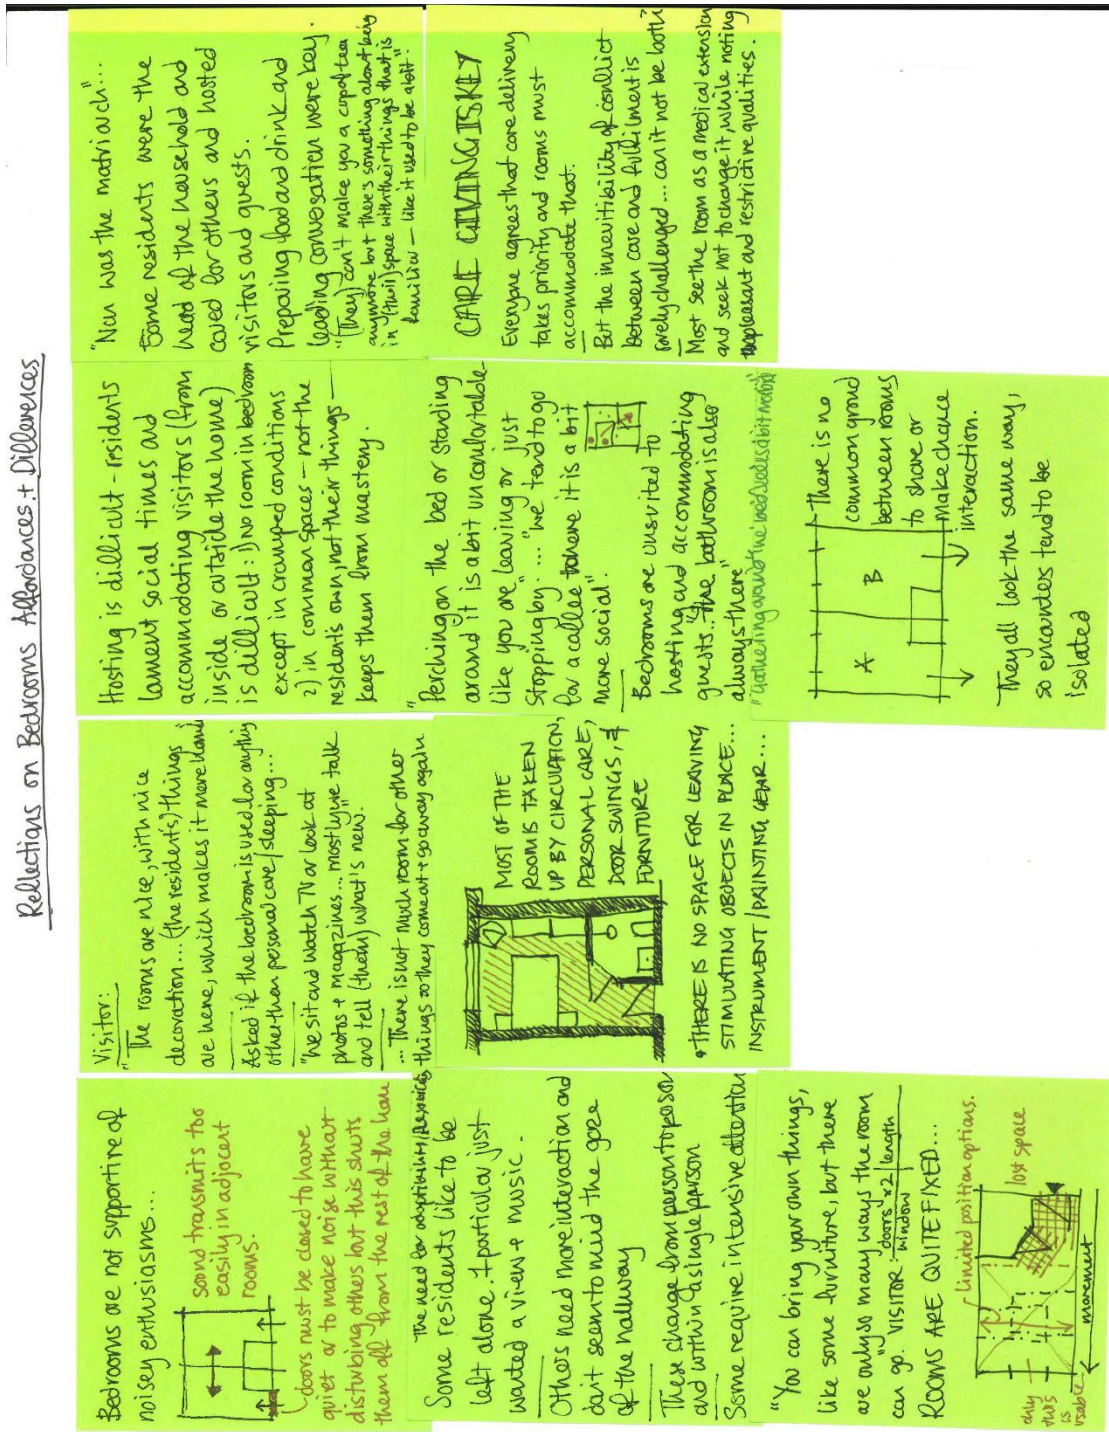 Reflections on Bedrooms Affordances + Differences
Bedrooms are not supportive of
noisey enthusiasms...
Sound transmits too
easily in adjacent
rooms.
doors must be closed to have
quiet or to make noise without
disturbing others but this shuts
them off from the rest of the home
The need for adaptibility/
Some residents like to be
left alone. 1 particular just
wanted a view + music.
Others need more interaction and
don't seem to mind the gaze
of the hallway
These change from person to person
and within a single person
Some require intensive attention
"You can bring your own things,
like some furniture, but there
are only so many ways the room
can go." VISITOR: doors x2 | length
window
ROOMS ARE QUITE FIXED...
limited position options.
lost space
only
this
is
usable
movement
Visitor:
"The rooms are nice, with nice
decoration... (the resident's) things
are here, which makes it more
Asked if the bedroom is used for anything
other than personal care/sleeping...
"We sit and watch TV or look at
photos + magazines... mostly we talk
and tell (them) what's new."
... There is not much room for other
things so they come out + go away again
MOST OF THE
ROOM IS TAKEN
UP BY CIRCULATION,
PERSONAL CARE,
DOOR SWINGS, &
FURNITURE
• THERE IS NO SPACE FOR LEAVING
STIMULATING OBJECTS IN PLACE...
INSTRUMENT / PAINTING GEAR...
Hosting is difficult - residents
lament social times and
accommodating visitors (from
inside or outside the home)
is difficult: 1) No room in bedroom
except in cramped conditions
2) in common spaces - not the
residents own, not their things -
keeps them from mastery.
"Perching on the bed or standing
around it is a bit uncomfortable
like you are leaving or just
stopping by"... "we tend to go
for a coffee where it is a bit
more social".
Bedrooms are unsuited to
hosting and accommodating
guests.. "the bathroom is also
always there"
"Gathering around the bed feels a bit morbid"
A
B
There is no
common ground
between rooms
to share or
make chance
interaction.
They all look the same way,
so encounters tend to be
isolated
"Nan was the matriarch"...
Some residents were the
head of the household and
cared for others and hosted
visitors and guests.
Preparing food and drink and
leading conversation were key.
"(They) can't make you a cup of tea
anymore but there's something about being
in (their) space with their things that is
familiar - like it used to be a bit".
CARE GIVING IS KEY
Everyone agrees that care delivery
takes priority and rooms must
accommodate that.
But the innevitibility of conflict
between care and fulfilment is
rarely challenged... can it not be both?
Most see the room as a medical extension
and seek not to change it, while noting
unpleasant and restrictive qualities.